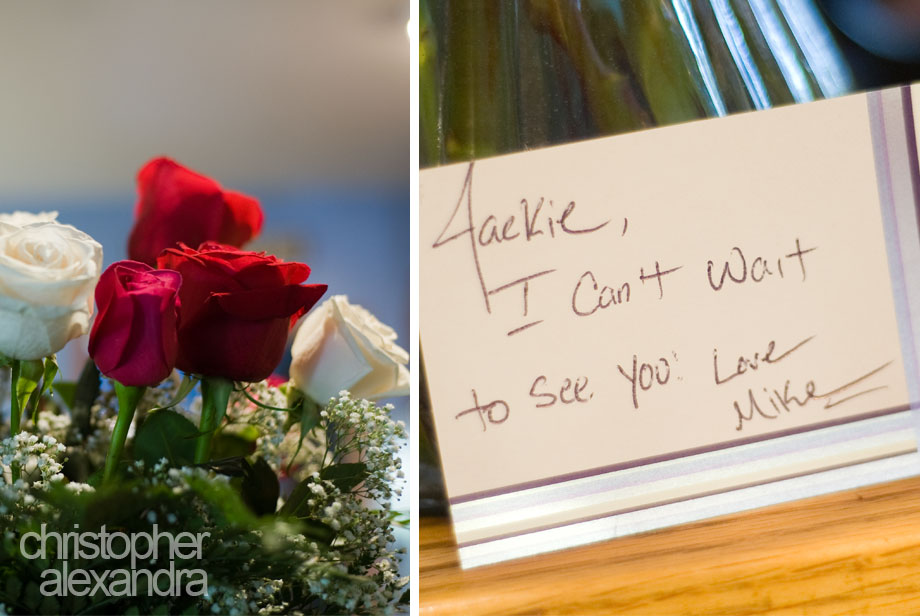 christopher
alexandra
Jackie,
I Can't Wait
to see you! Love
Mike